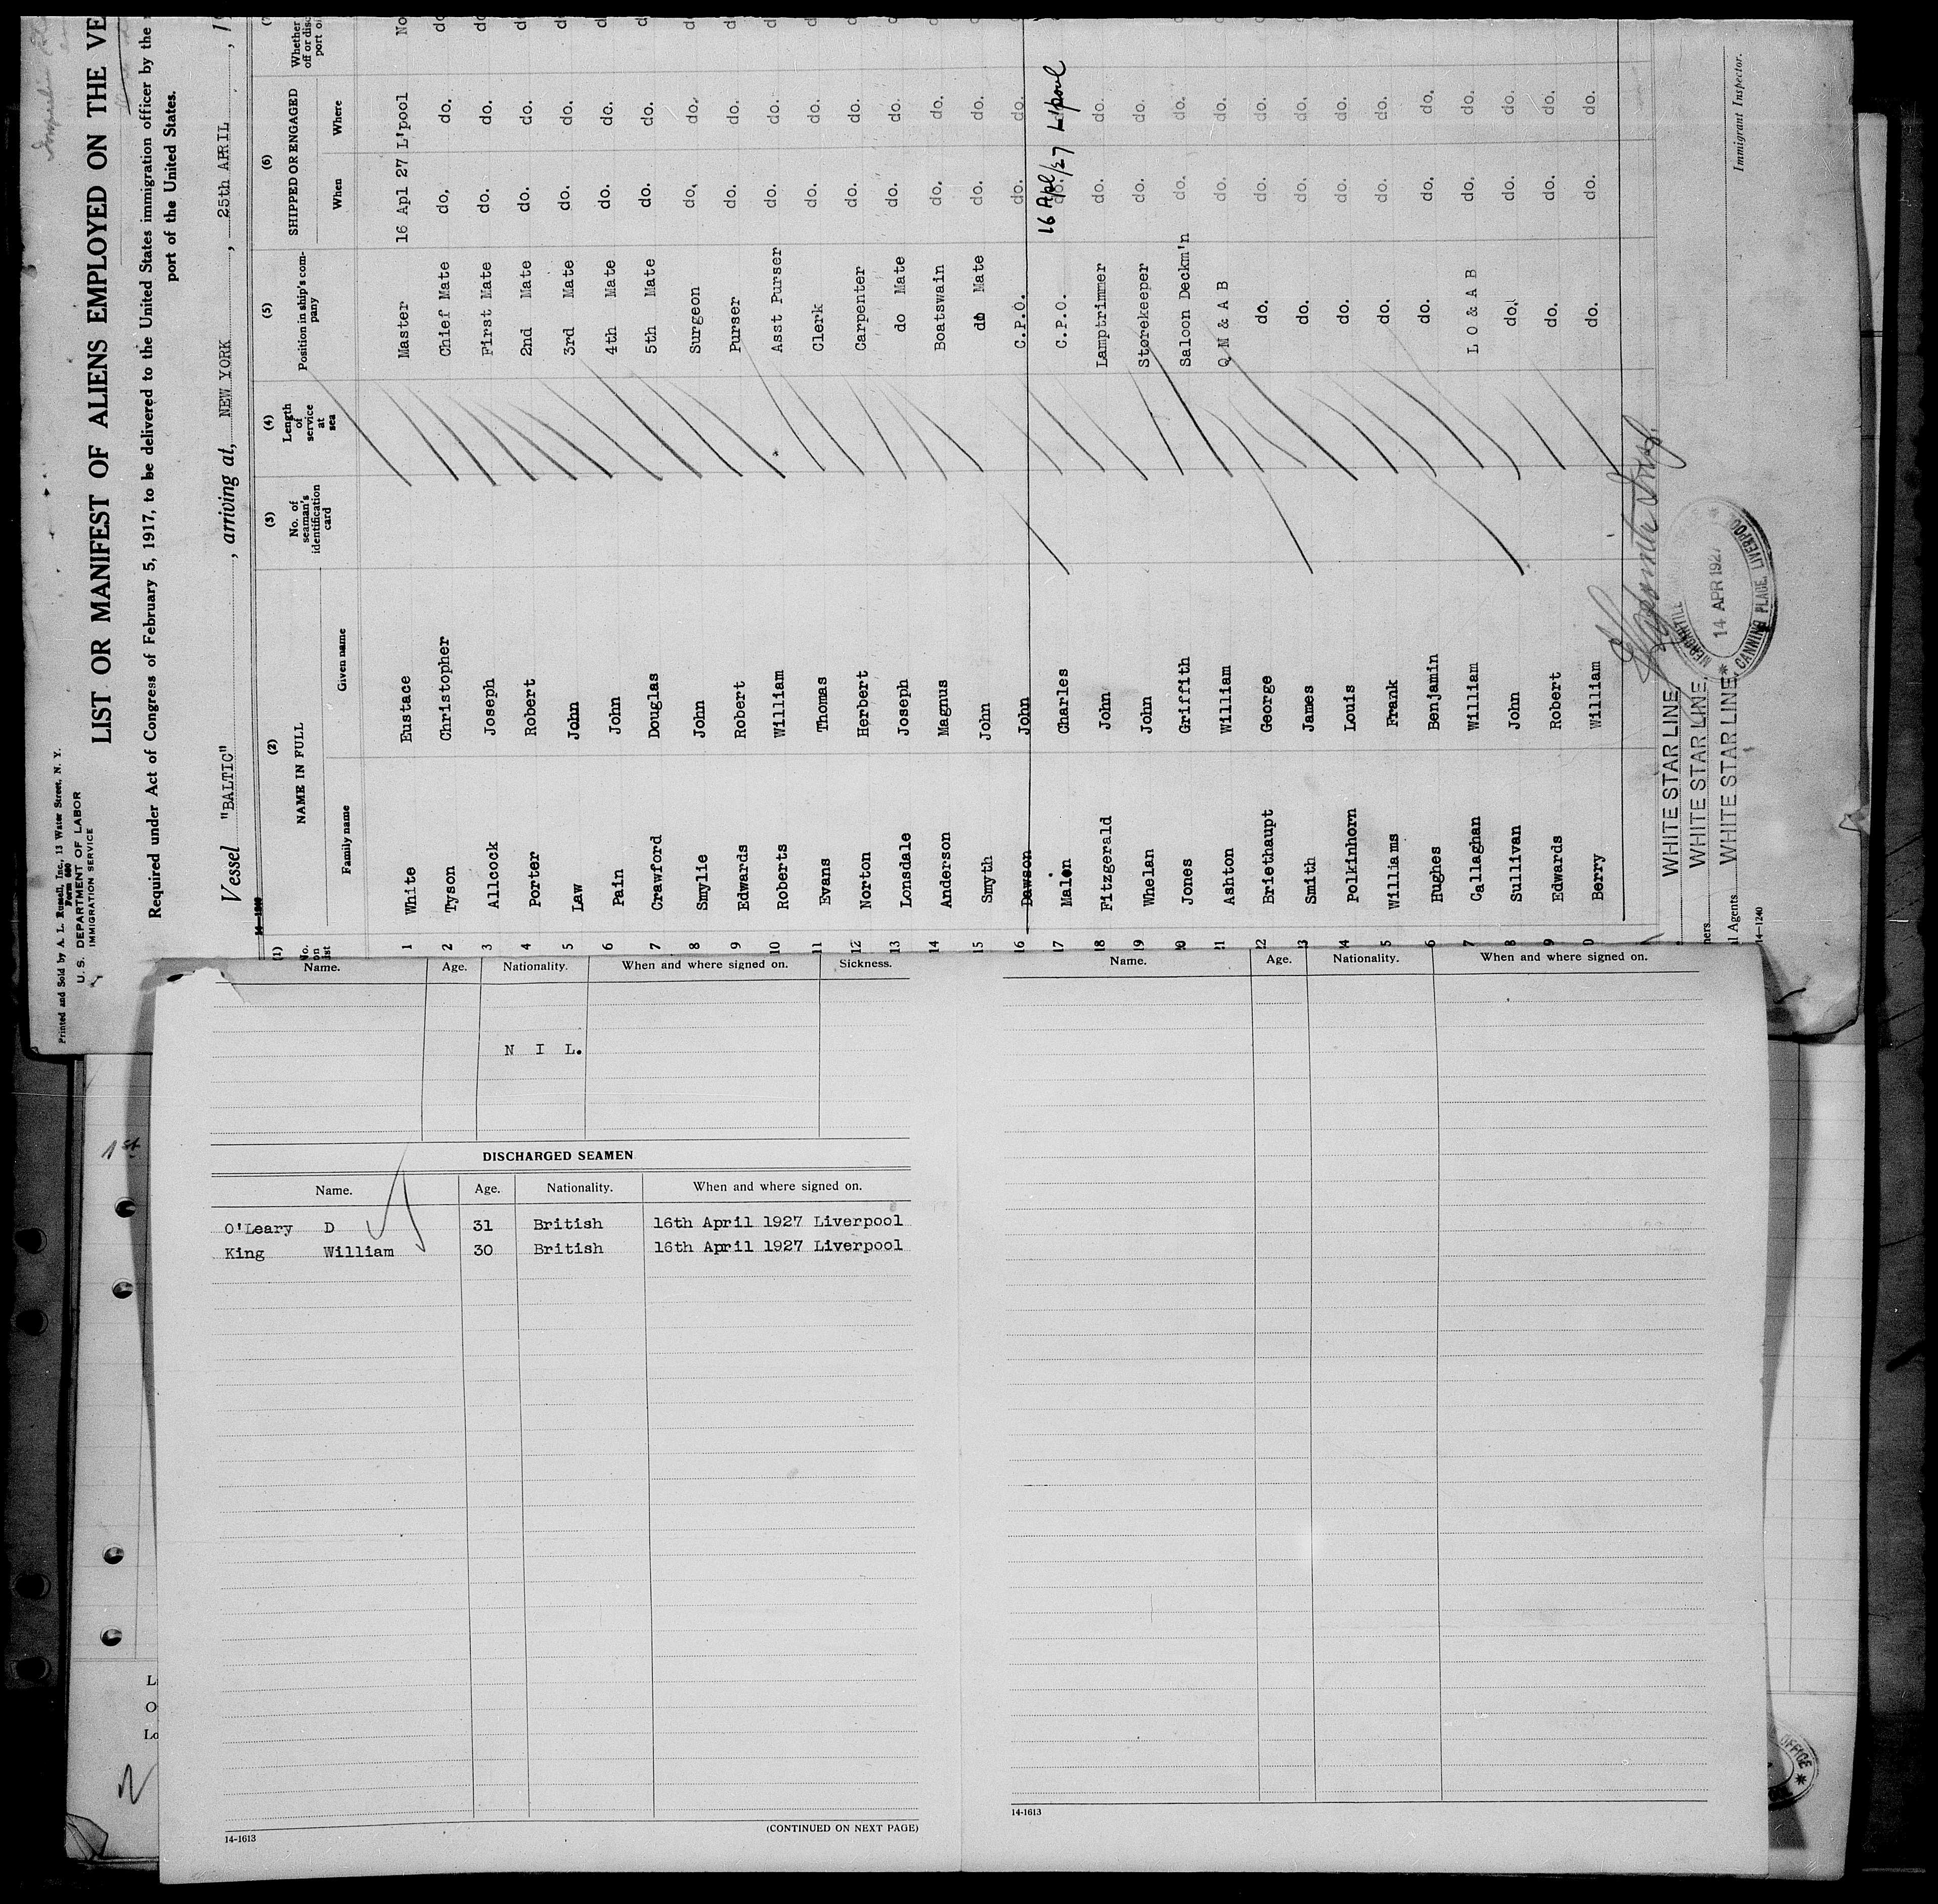 Printed and Sold by A. L. Russell, Inc., 13 Water Street, N. Y.
Form 600
U. S. DEPARTMENT OF LABOR
IMMIGRATION SERVICE
LIST OR MANIFEST OF ALIENS EMPLOYED ON THE VE
Required under Act of Congress of February 5, 1917, to be delivered to the United States immigration officer by the
port of the United States.
Vessel "BALTIC" , arriving at, NEW YORK , 25th APRIL , 19
(1) (2) (3) (4) (5) (6) (7)
No. on list NAME IN FULL No. of seaman's identification card Length of service at sea Position in ship's company SHIPPED OR ENGAGED Whether
Family name Given name When Where
1 White Eustace Master 16 Apl 27 L'pool No
2 Tyson Christopher Chief Mate do. do. do
3 Allcock Joseph First Mate do. do. do
4 Porter Robert 2nd Mate do. do. do
5 Law John 3rd Mate do. do. do
6 Pain John 4th Mate do. do. do
7 Crawford Douglas 5th Mate do. do. do
8 Smylie John Surgeon do. do. d
9 Edwards Robert Purser do. do. d
10 Roberts William Asst Purser do. do. d
11 Evans Thomas Clerk do. do. d
12 Norton Herbert Carpenter do. do. d
13 Lonsdale Joseph do Mate do. do. d
14 Anderson Magnus Boatswain do. do. d
15 Smyth John do Mate do. do. d
16 Dawson John C.P.O. do. do. d
17 Malon Charles C.P.O. 16 Apl/27 L'pool
18 Fitzgerald John Lamptrimmer do. do.
19 Whelan John Storekeeper do. do.
20 Jones Griffith Saloon Deckm'n do. do.
21 Ashton William Q M & A B do. do.
22 Briethaupt George do. do. do.
23 Smith James do. do. do.
24 Polkinhorn Louis do. do. do.
5 Williams Frank do. do. do.
6 Hughes Benjamin do. do. do.
7 Callaghan William L O & A B do. do.
8 Sullivan John do. do. do.
9 Edwards Robert do. do. do.
0 Berry William do. do. do.
WHITE STAR LINE
WHITE STAR LINE
WHITE STAR LINE
ners
l Agents
14-1240
Immigrant Inspector.
14 APR 1927
CANNING PLACE, LIVERPOO
Name. Age. Nationality. When and where signed on. Sickness.
N I L.
DISCHARGED SEAMEN
Name. Age. Nationality. When and where signed on.
O'Leary D 31 British 16th April 1927 Liverpool
King William 30 British 16th April 1927 Liverpool
14-1613 (CONTINUED ON NEXT PAGE)
Name. Age. Nationality. When and where signed on.
14-1613
1st
L
O
Lo
OFFICE